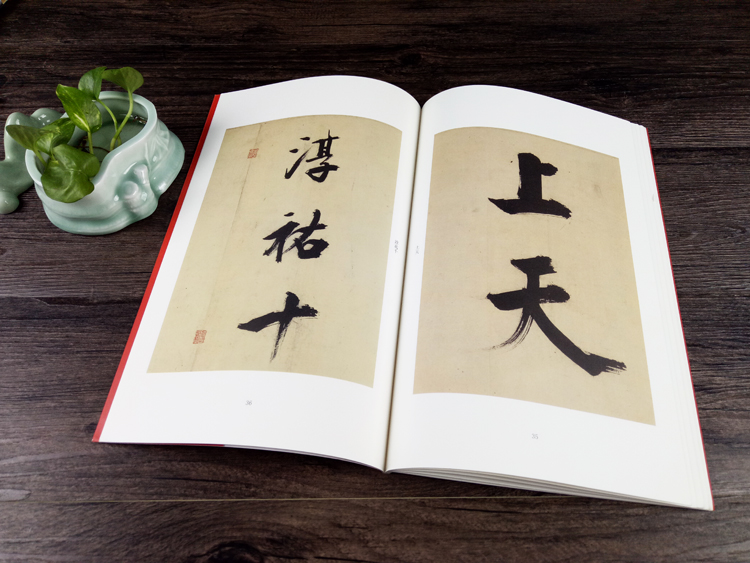 上天
淳祐十